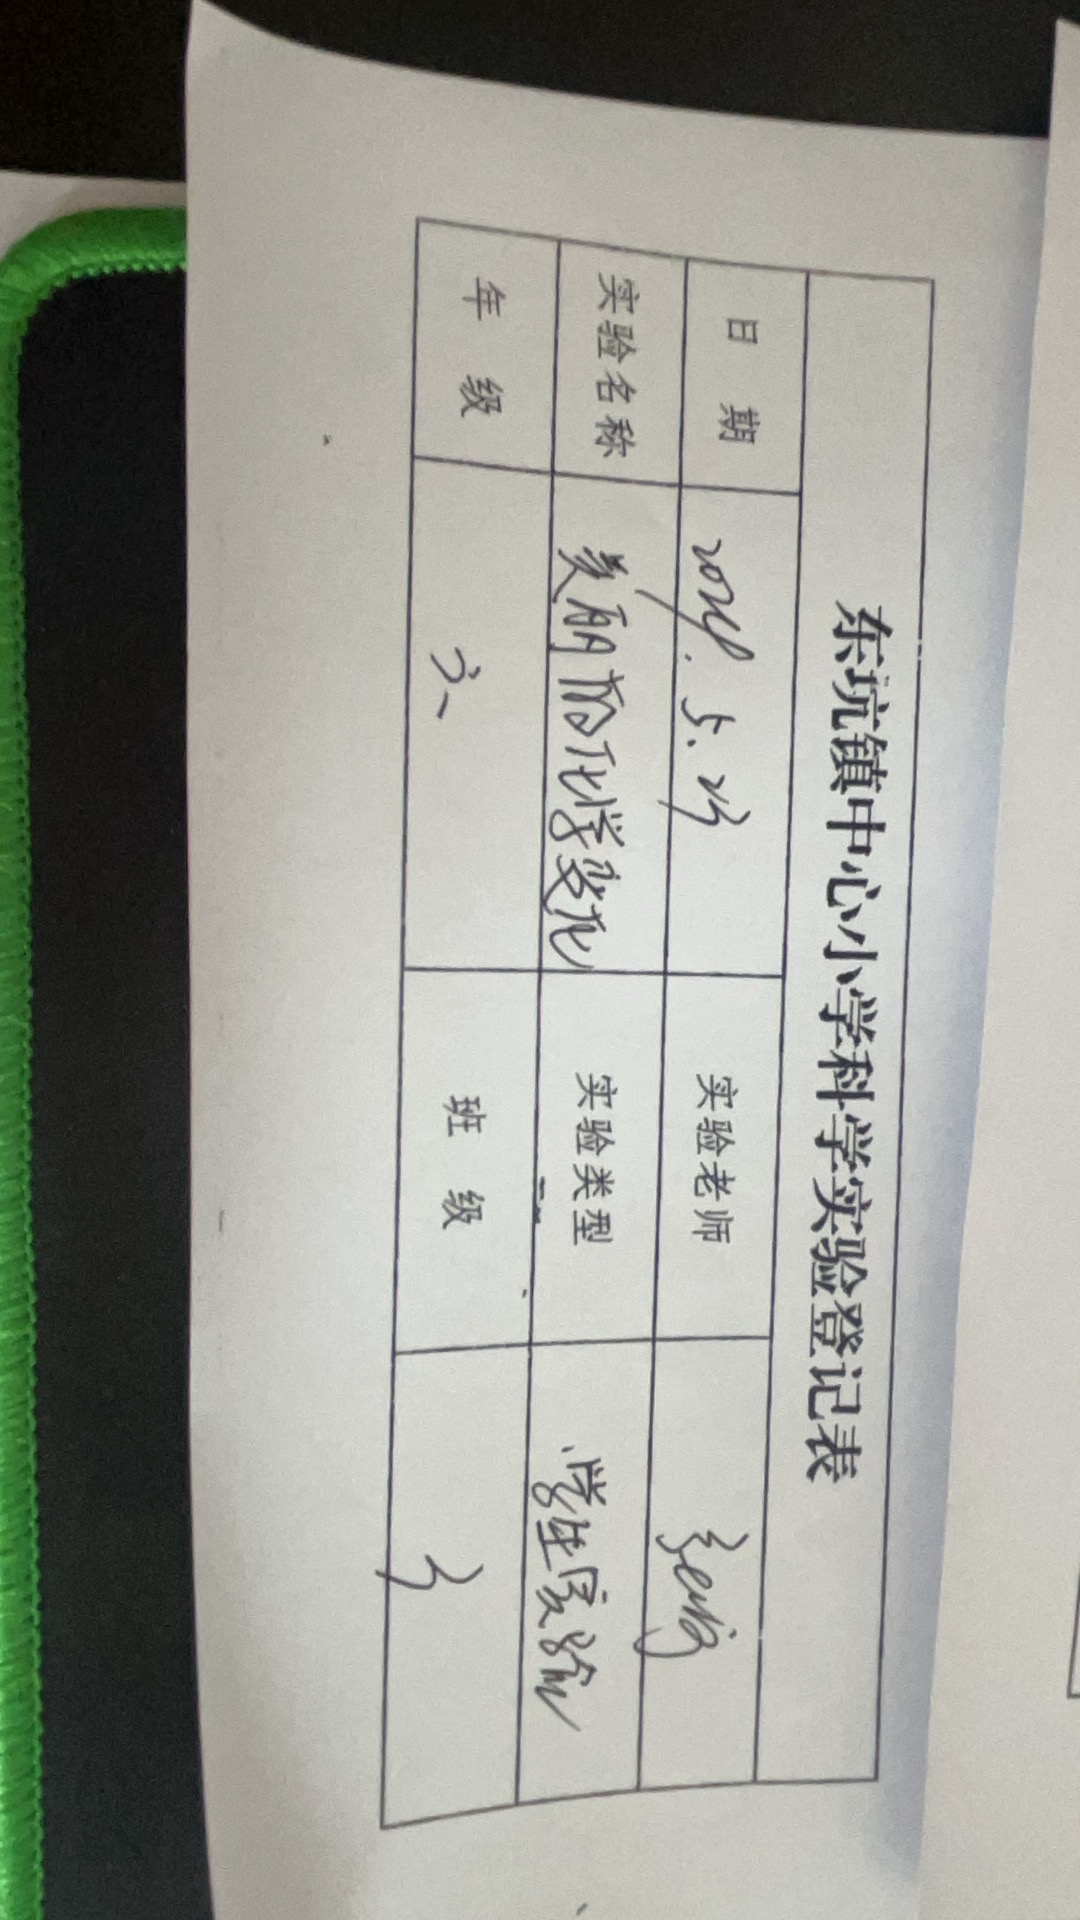 东坑镇中心小学科学实验登记表
日 期 2024.5.23 实验老师
实验名称 美丽的化学变化 实验类型 学生实验
年 级 六 班 级 3